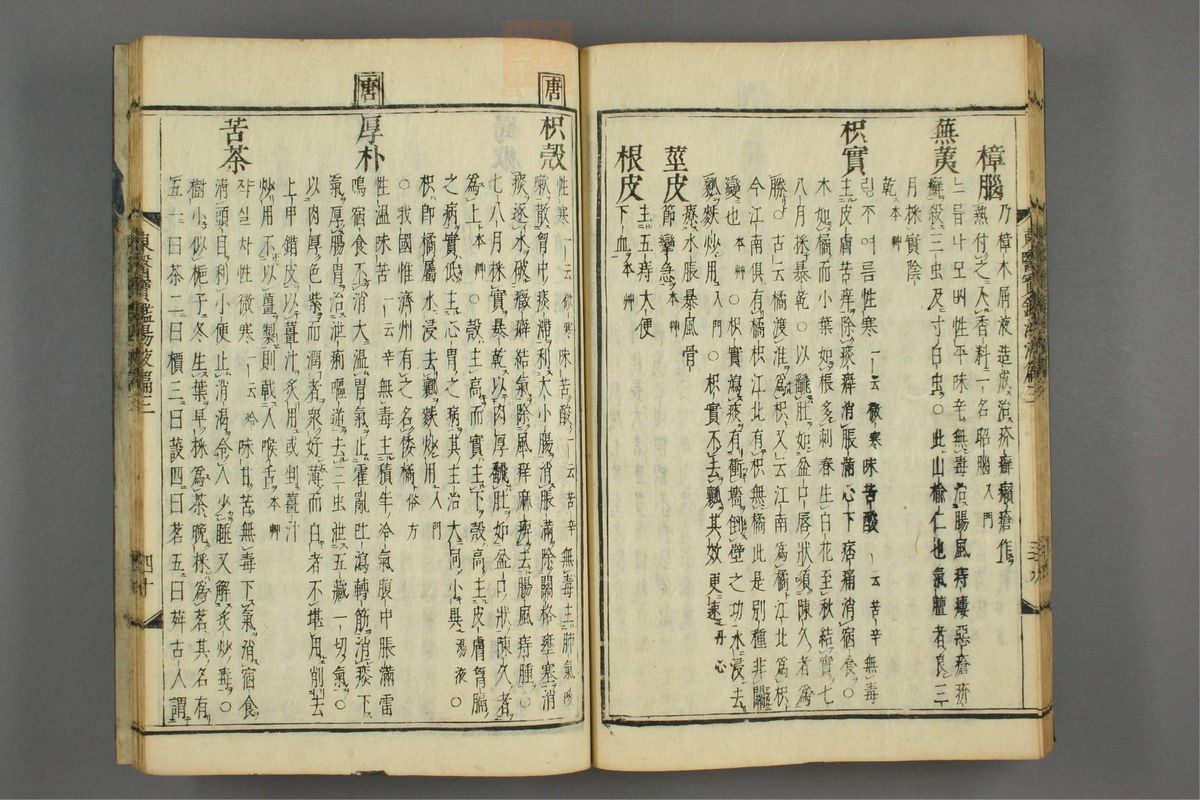 樟腦
乃樟木屑液造成治疥癬癩瘡作
熱付之入香料一名昭腦入門
蕪荑
느릅나모 性平味辛無毒治腸風痔瘻惡瘡疥
癬殺三虫及寸白虫○此山榆仁也氣膻者良三
月採實陰
乾本艸
枳實
여름 性寒一云微寒味苦酸一云苦辛無毒
主皮膚苦痒除痰癖消脹滿心下痞痛消宿食○
木如橘而小葉如棖多刺春生白花至秋結實七
八月採暴乾○以飜肚如盆口唇狀須陳久者爲
勝○古云橘渡淮爲枳又云江南爲橘江北爲枳
今江南俱有橘枳江北有枳無橘此是別種非關
變也本艸○枳實瀉痰有衝墻倒壁之功水浸去
瓤麩炒用入門○枳實不去瓤其效更速丹心
莖皮
療水脹暴風骨
節攣急本艸
根皮
主五痔大便
下血本艸
東醫寶鑑湯液篇三
三十九
唐
枳殼
性寒一云微寒味苦酸一云苦辛無毒主肺氣咳
嗽散胷中痰滯利大小腸消脹滿除關格壅塞消
痰逐水破癥癖結氣除風痒麻痺去腸風痔腫○
七八月採實暴乾以肉厚飜肚如盆口狀陳久者
爲上本艸○殼主高而實主下殼高主皮膚胷膈
之病實低主心胃之病其主治大同小異湯液○
枳卽橘屬水浸去瓤麩炒用入門
○我國惟濟州有之名倭橘俗方
唐
厚朴
性溫味苦一云辛無毒主積年冷氣腹中脹滿雷
鳴宿食不消大溫胃氣止霍亂吐瀉轉筋消痰下
氣厚腸胃治泄痢嘔逆去三虫泄五藏一切氣○
以肉厚色紫而潤者爲好薄而白者不堪用削去
上甲錯皮以薑汁炙用或剉薑汁
炒用不以薑製則戟人喉舌本艸
苦茶
쟉설차 性微寒一云冷味甘苦無毒下氣消宿食
淸頭目利小便止消渴令人少睡又解炙炒毒○
樹小似梔子冬生葉早採爲茶晩採爲茗其名有
五一曰茶二曰檟三曰蔎四曰茗五曰荈古人謂
東醫寶鑑湯液篇三
四十